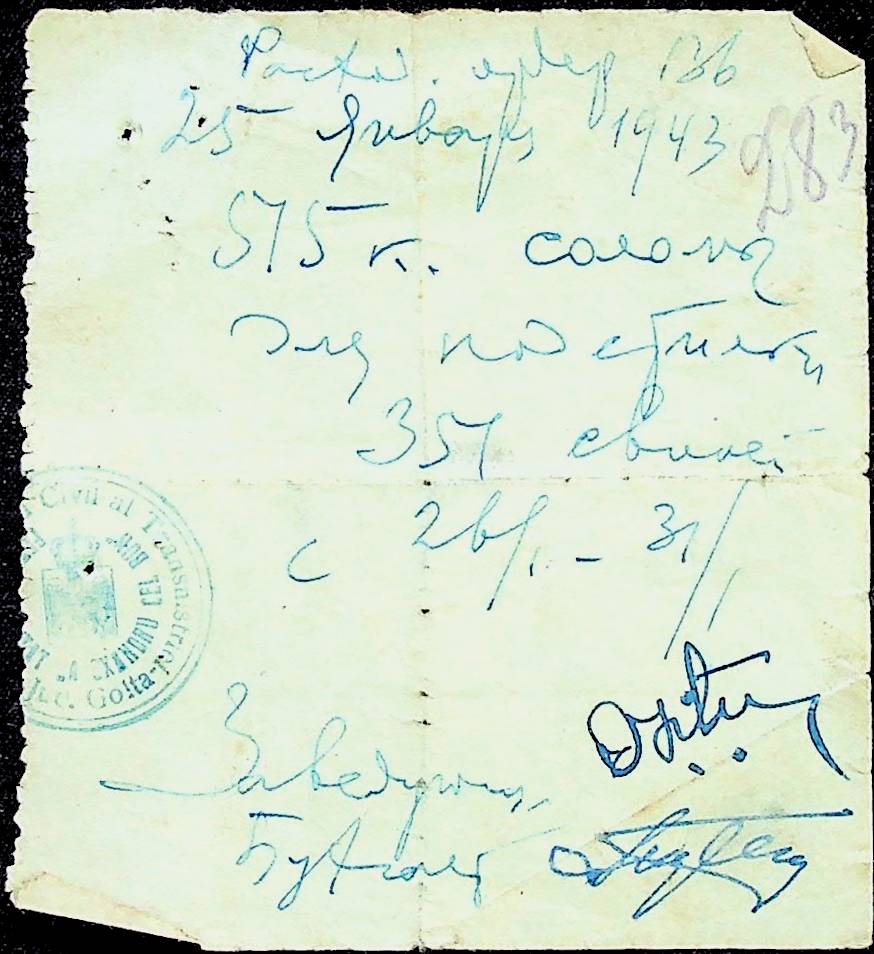 Расход. ордер 136
25 Января 1943
283
515 к. соломы
Для подстилки
351 свиней
с 26/I - 31/I
Civil al Transnistriei
Jud. Golta
Заведующ.
Бухгалтер